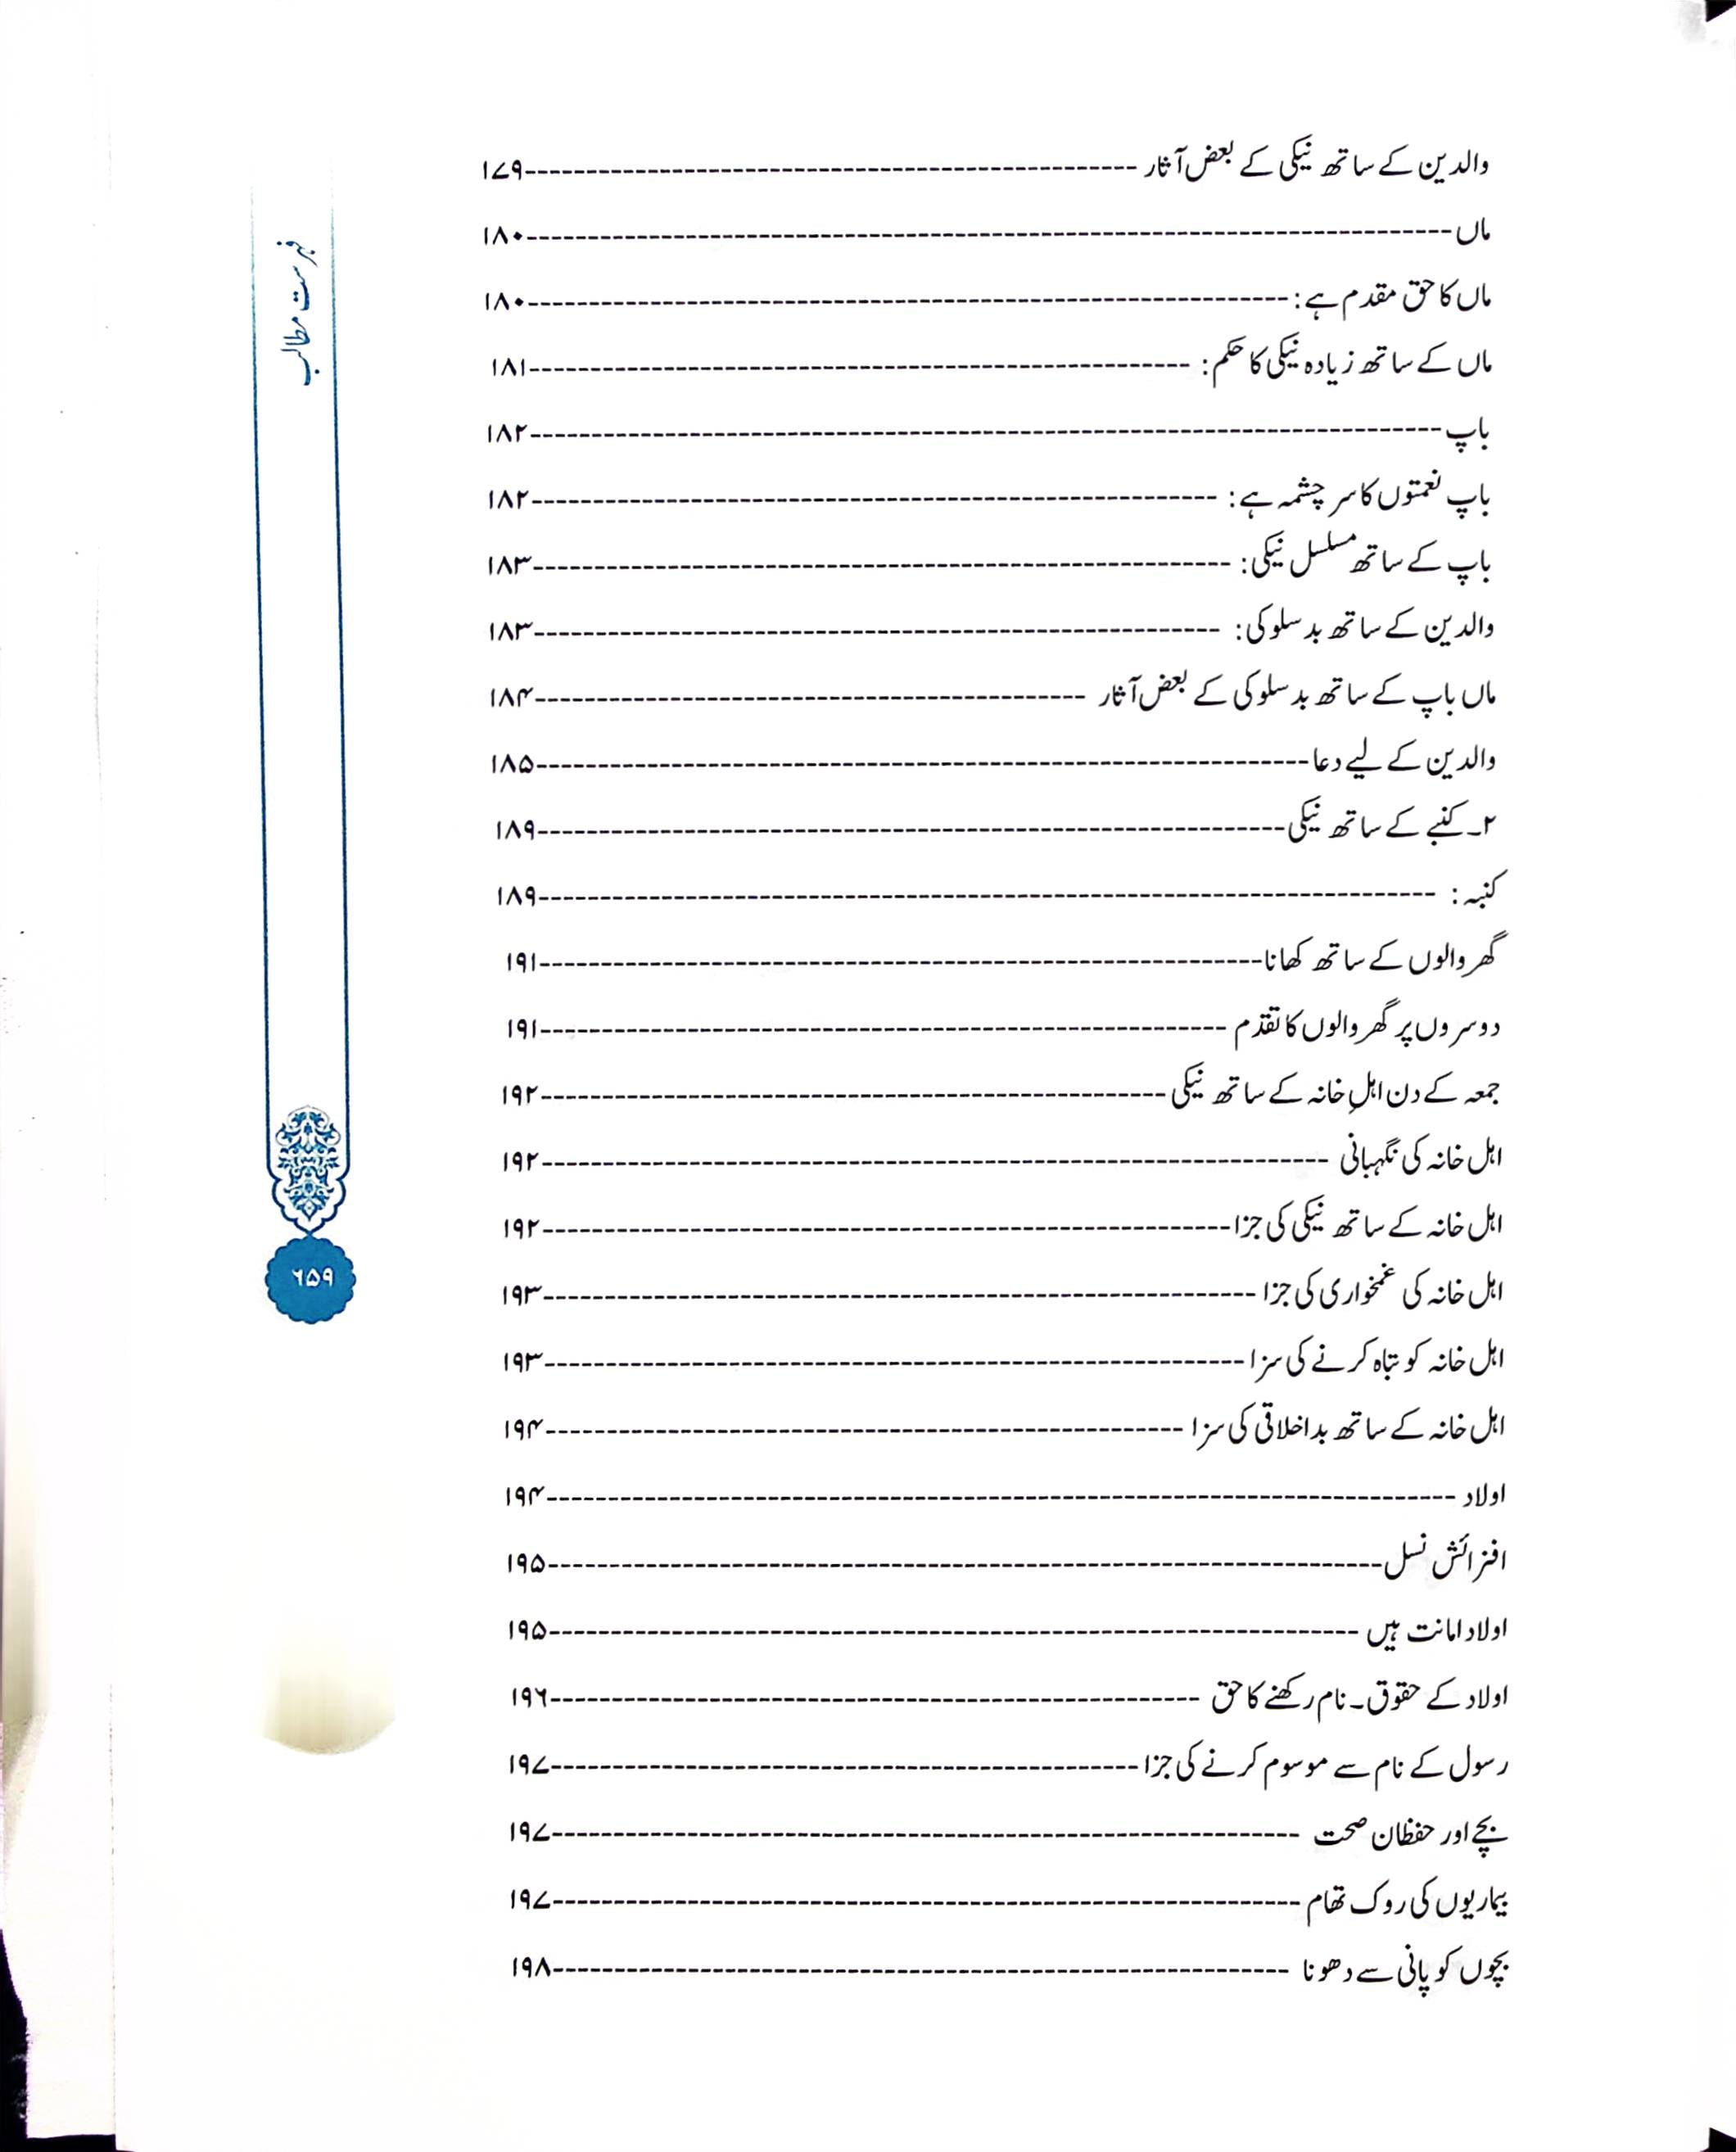 والدین کے ساتھ نیکی کے بعض آثار ------ ۱۷۹
ماں ------ ۱۸۰
ماں کا حق مقدم ہے: ------ ۱۸۰
ماں کے ساتھ زیادہ نیکی کا حکم: ------ ۱۸۱
باپ ------ ۱۸۲
باپ نعمتوں کا سر چشمہ ہے: ------ ۱۸۲
باپ کے ساتھ مسلسل نیکی: ------ ۱۸۳
والدین کے ساتھ بد سلوکی: ------ ۱۸۳
ماں باپ کے ساتھ بد سلوکی کے بعض آثار ------ ۱۸۴
والدین کے لیے دعا ------ ۱۸۵
۲۔ کنبے کے ساتھ نیکی ------ ۱۸۹
کنبہ: ------ ۱۸۹
گھر والوں کے ساتھ کھانا ------ ۱۹۱
دوسروں پر گھر والوں کا تقدم ------ ۱۹۱
جمعہ کے دن اہلِ خانہ کے ساتھ نیکی ------ ۱۹۲
اہل خانہ کی نگہبانی ------ ۱۹۲
اہل خانہ کے ساتھ نیکی کی جزا ------ ۱۹۲
اہل خانہ کی غمخواری کی جزا ------ ۱۹۳
اہل خانہ کو تباہ کرنے کی سزا ------ ۱۹۳
اہل خانہ کے ساتھ بد اخلاقی کی سزا ------ ۱۹۴
اولاد ------ ۱۹۴
افزائش نسل ------ ۱۹۵
اولاد امانت ہیں ------ ۱۹۵
اولاد کے حقوق۔ نام رکھنے کا حق ------ ۱۹۶
رسول کے نام سے موسوم کرنے کی جزا ------ ۱۹۷
بچے اور حفظان صحت ------ ۱۹۷
بیماریوں کی روک تھام ------ ۱۹۷
بچوں کو پانی سے دھونا ------ ۱۹۸
فہرست مطالب
۶۵۹